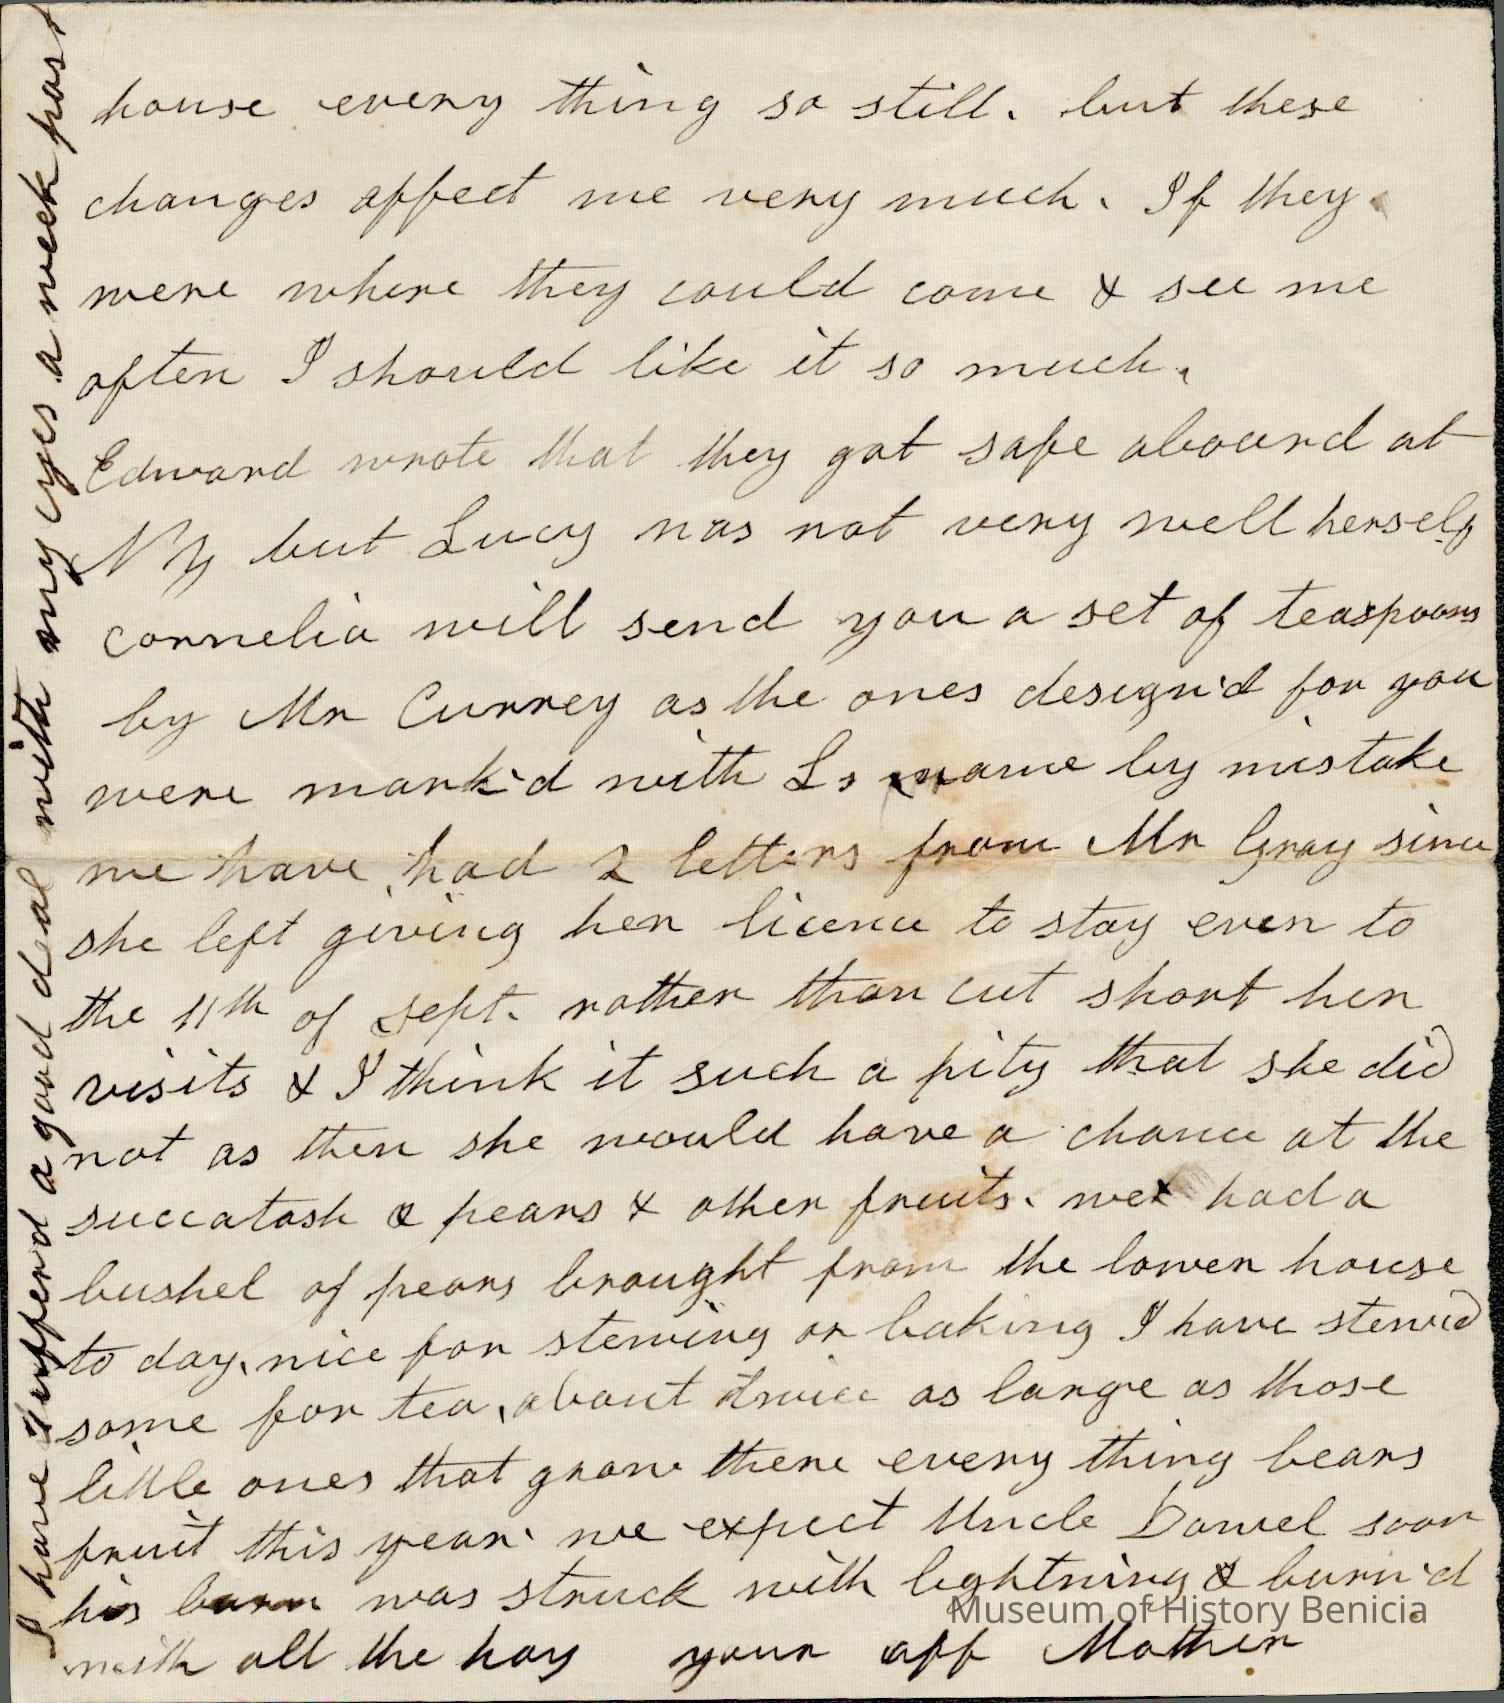 house every thing so still. but these
changes affect me very much. If they
were where they could come & see me
often I should like it so much.
Edward wrote that they got safe aboard at
N Y but Lucy was not very well herself
Cornelia will send you a set of teaspoons
by Mr Currey as the ones design'd for you
were mark'd with Ls name by mistake
we have had 2 letters from Mr Gray since
she left giving her licence to stay even to
the 11th of Sept. rather than cut short her
visits & I think it such a pity that she did
not as then she would have a chance at the
succatash & pears & other fruits. we had a
bushel of pears brought from the lower house
to day, nice for stewing or baking I have stewed
some for tea, about twice as large as those
little ones that grow there every thing bears
fruit this year. we expect Uncle Daniel soon
his barn was struck with lightning & burn'd
with all the hay your aff Mother
I have suffered a good deal with my eyes a week past
Museum of History Benicia